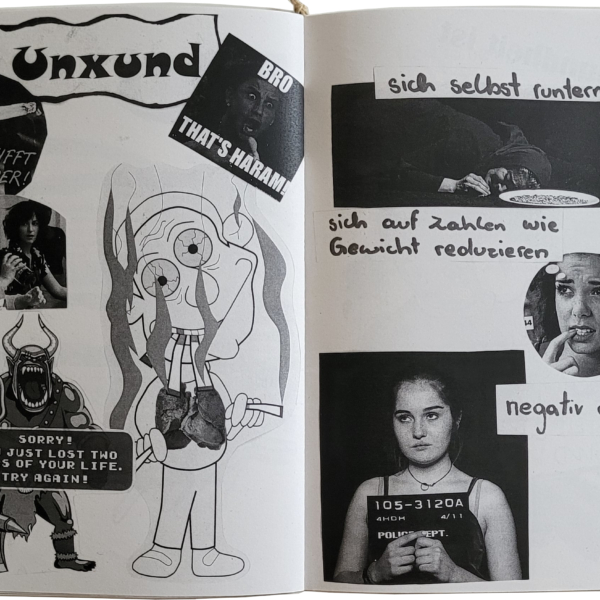 Unxund
BRO
THAT'S HARAM!
SORRY!
JUST LOST TWO
OF YOUR LIFE.
TRY AGAIN!
sich selbst
sich auf Zahlen wie
Gewicht reduzieren
negativ
105-3120A
4HDH 4/11